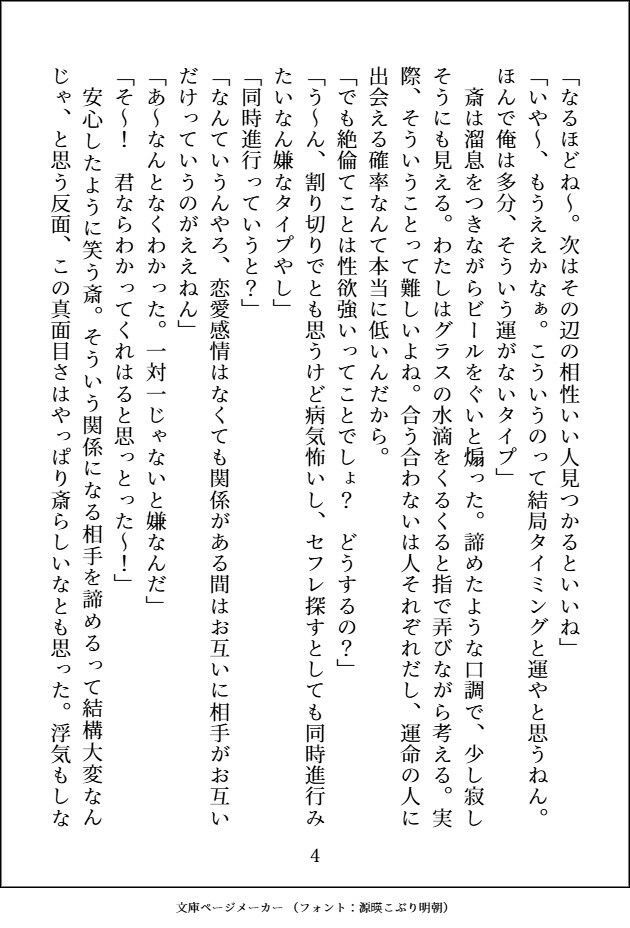 「なるほどね〜。次はその辺の相性いい人見つかるといいね」
「いや〜、もうええかなぁ。こういうのって結局タイミングと運やと思うねん。
ほんで俺は多分、そういう運がないタイプ」
　斎は溜息をつきながらビールをぐいと煽った。諦めたような口調で、少し寂し
そうにも見える。わたしはグラスの水滴をくるくると指で弄びながら考える。実
際、そういうことって難しいよね。合う合わないは人それぞれだし、運命の人に
出会える確率なんて本当に低いんだから。
「でも絶倫てことは性欲強いってことでしょ？　どうするの？」
「う〜ん、割り切りでとも思うけど病気怖いし、セフレ探すとしても同時進行み
たいなん嫌なタイプやし」
「同時進行っていうと？」
「なんていうんやろ、恋愛感情はなくても関係がある間はお互いに相手がお互い
だけっていうのがええねん」
「あ〜なんとなくわかった。一対一じゃないと嫌なんだ」
「そ〜！　君ならわかってくれはると思っとった〜！」
　安心したように笑う斎。そういう関係になる相手を諦めるって結構大変なん
じゃ、と思う反面、この真面目さはやっぱり斎らしいなとも思った。浮気もしな
4
文庫ページメーカー（フォント：源暎こぶり明朝）